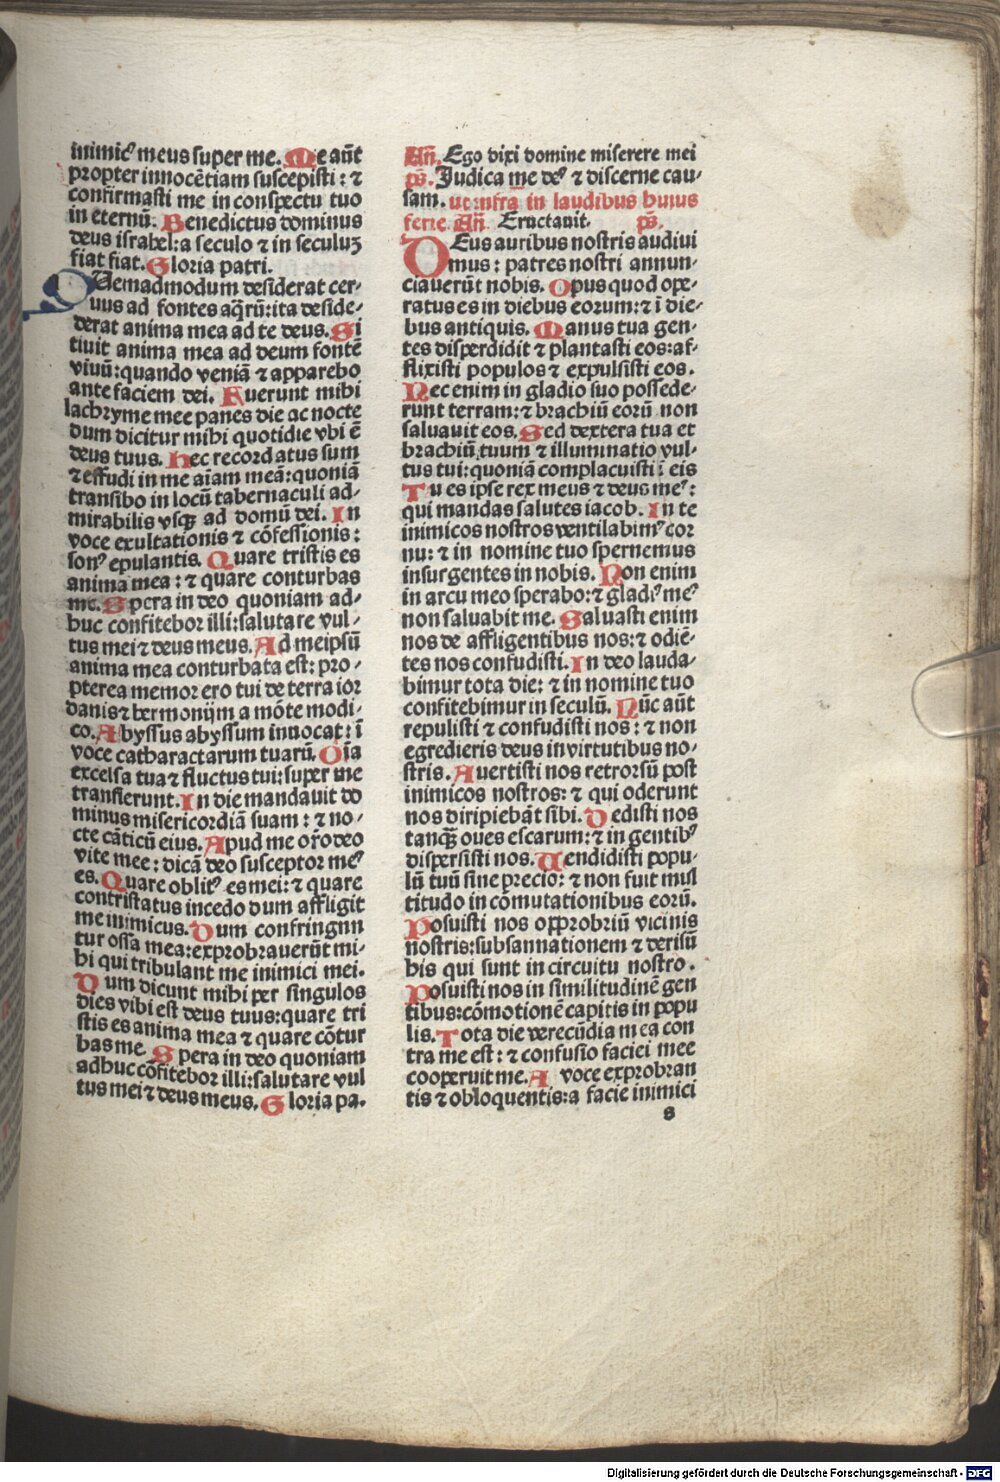 inimicꝰ meus super me. Me aūt
propter innocētiam suscepisti: ⁊
confirmasti me in conspectu tuo
in eternū. Benedictus dominus
deus israhel: a seculo ⁊ in seculuꝫ
fiat fiat. Gloria patri.
QUemadmodum desiderat cer-
uus ad fontes aq̄rū: ita deside-
derat anima mea ad te deus. Si
tiuit anima mea ad deum fontē
viuū: quando veniā ⁊ apparebo
ante faciem dei. Fuerunt mihi
lachryme mee panes die ac nocte
dum dicitur mihi quotidie vbi ē
deus tuus. Hec recordatus sum
⁊ effudi in me aīam meā: quoniā
transibo in locū tabernaculi ad-
mirabilis vsqꝫ ad domū dei. In
voce exultationis ⁊ cōfessionis:
sonꝰ epulantis. Quare tristis es
anima mea: ⁊ quare conturbas
me. Spera in deo quoniam ad-
huc confitebor illi: salutare vul-
tus mei ⁊ deus meus. Ad meipsū
anima mea conturbata est: pro-
pterea memor ero tui de terra ior
danis ⁊ hermonijm a mōte modi-
co. Abyssus abyssum inuocat: ī
voce catharactarum tuarū. Oīa
excelsa tua ⁊ fluctus tui: super me
transierunt. In die mandauit do
minus misericordiā suam: ⁊ no-
cte cāticū eius. Apud me or̄o deo
vite mee: dicā deo susceptor meꝰ
es. Quare oblitꝰ es mei: ⁊ quare
contristatus incedo dum affligit
me inimicus. Dum confringun
tur ossa mea: exprobrauerūt mi-
hi qui tribulant me inimici mei.
Dum dicunt mihi per singulos
dies vibi est deus tuus: quare tri
stis es anima mea ⁊ quare cōtur
bas me. Spera in deo quoniam
adhuc cōfitebor illi: salutare vul
tus mei ⁊ deus meus. Gloria pa.
Añ. Ego dixi domine miserere mei
pꝰs. Judica me deꝰ ⁊ discerne cau-
sam. ut infra in laudibus huius
ferie. Añ. Eructauit. pꝰs.
DEus auribus nostris audiui
mus: patres nostri annun-
ciauerūt nobis. Opus quod ope-
ratus es in diebus eorum: ⁊ ī die-
bus antiquis. Manus tua gen-
tes disperdidit ⁊ plantasti eos: af-
flixisti populos ⁊ expulsisti eos.
Nec enim in gladio suo possede-
runt terram: ⁊ brachiū eorū non
saluauit eos. Sed dextera tua et
brachiū tuum ⁊ illuminatio vul-
tus tui: quoniā complacuisti ī eis
Tu es ipse rex meus ⁊ deus meꝰ:
qui mandas salutes iacob. In te
inimicos nostros ventilabimꝰ cor
nu: ⁊ in nomine tuo spernemus
insurgentes in nobis. Non enim
in arcu meo sperabo: ⁊ gladiꝰ meꝰ
non saluabit me. Saluasti enim
nos de affligentibus nos: ⁊ odiē-
tes nos confudisti. In deo lauda-
bimur tota die: ⁊ in nomine tuo
confitebimur in seculū. Nūc aūt
repulisti ⁊ confudisti nos: ⁊ non
egredieris deus in virtutibus no-
stris. Auertisti nos retrorsū post
inimicos nostros: ⁊ qui oderunt
nos diripiebāt sibi. Dedisti nos
tanqꝫ oues escarum: ⁊ in gentibꝰ
dispersisti nos. Uendidisti popu-
lū tuū sine precio: ⁊ non fuit mul
titudo in cōmutationibus eorū.
Posuisti nos opprobriū vicinis
nostris: subsannationem ⁊ derisū
his qui sunt in circuitu nostro.
Posuisti nos in similitudinē gen
tibus: cōmotionē capitis in popu
lis. Tota die verecūdia mea con
tra me est: ⁊ confusio faciei mee
cooperuit me. A voce exprobran
tis ⁊ obloquentis: a facie inimici
s
Digitalisierung gefördert durch die Deutsche Forschungsgemeinschaft - DFG